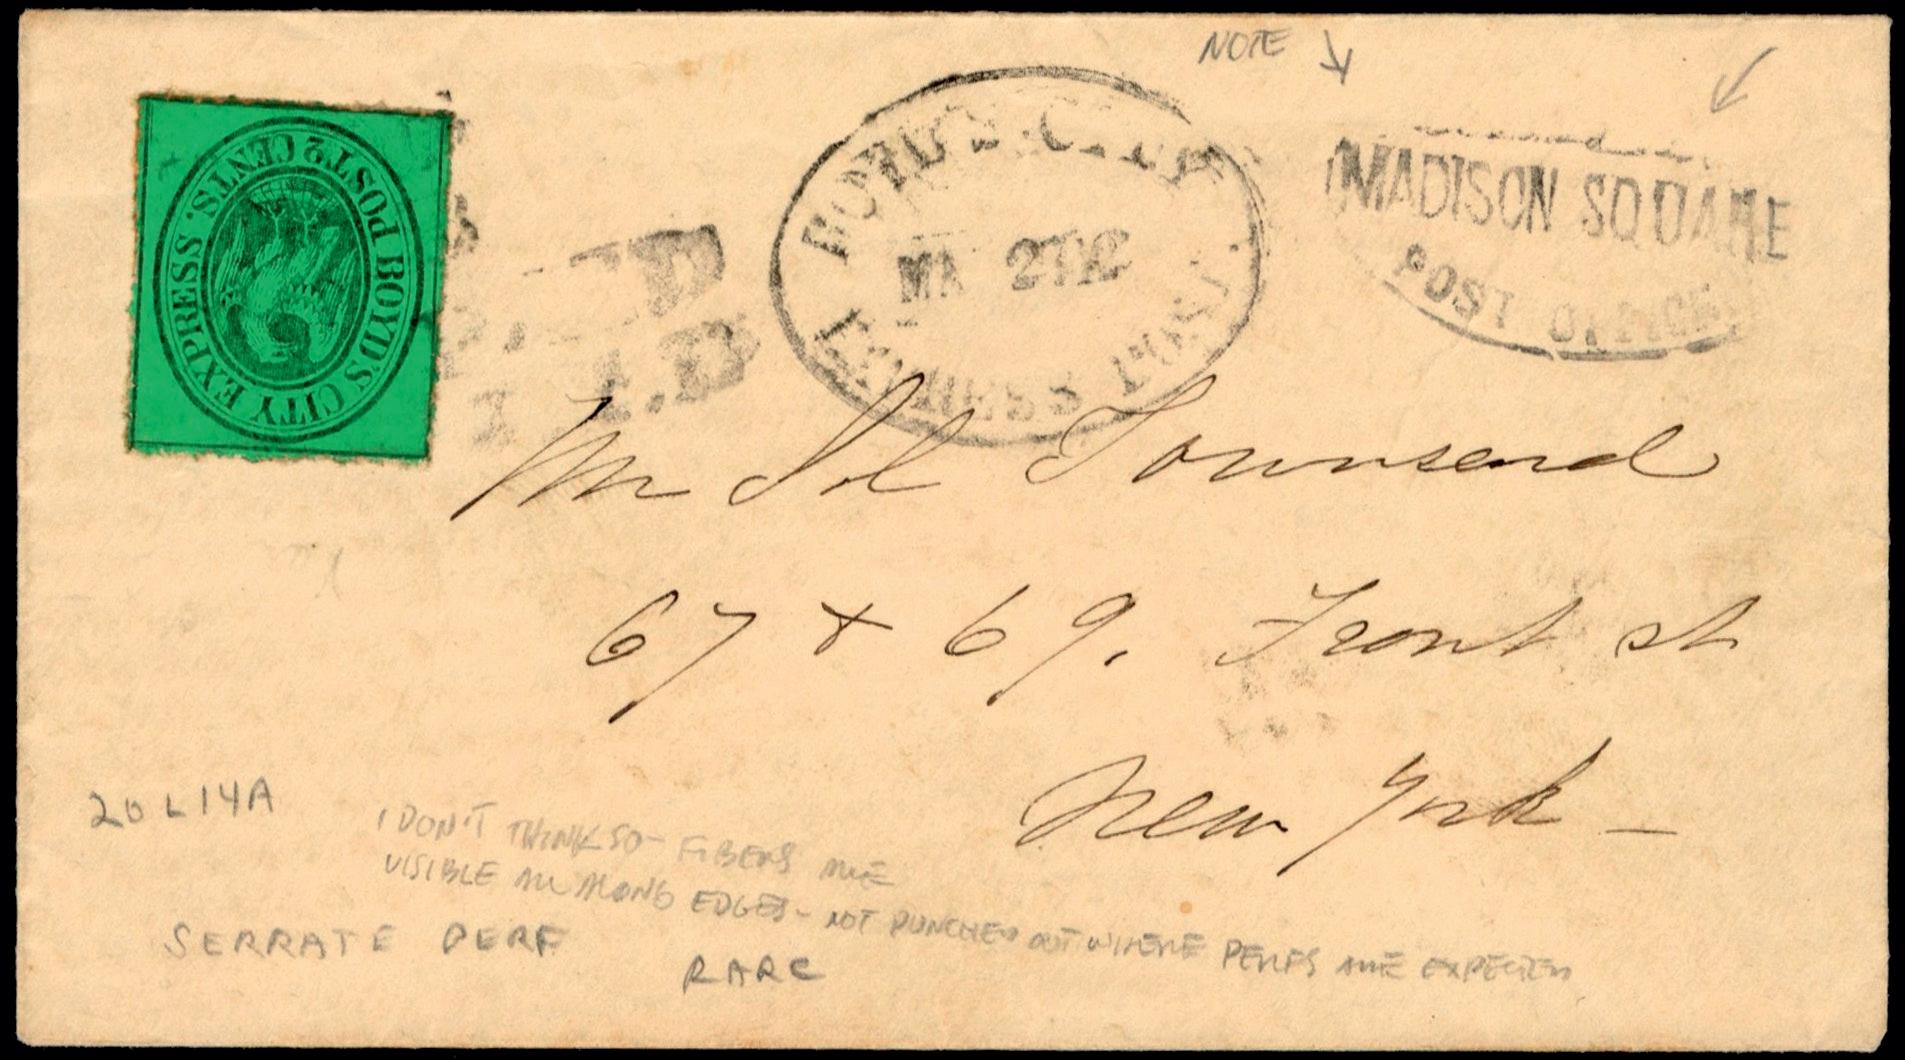 NOTE
BOYD'S CITY EXPRESS. POST 2 CENTS.
BOYD'S CITY
MA 27 12
EXPRESS POST.
MADISON SQUARE
POST OFFICE
Townsend
67 + 69. Front st
New York -
20L14A
I DON'T THINK SO - FIBERS ARE
VISIBLE ALL ALONG EDGES - NOT PUNCHED OUT WHERE PERFS ARE EXPECTED
SERRATE PERF
RARE